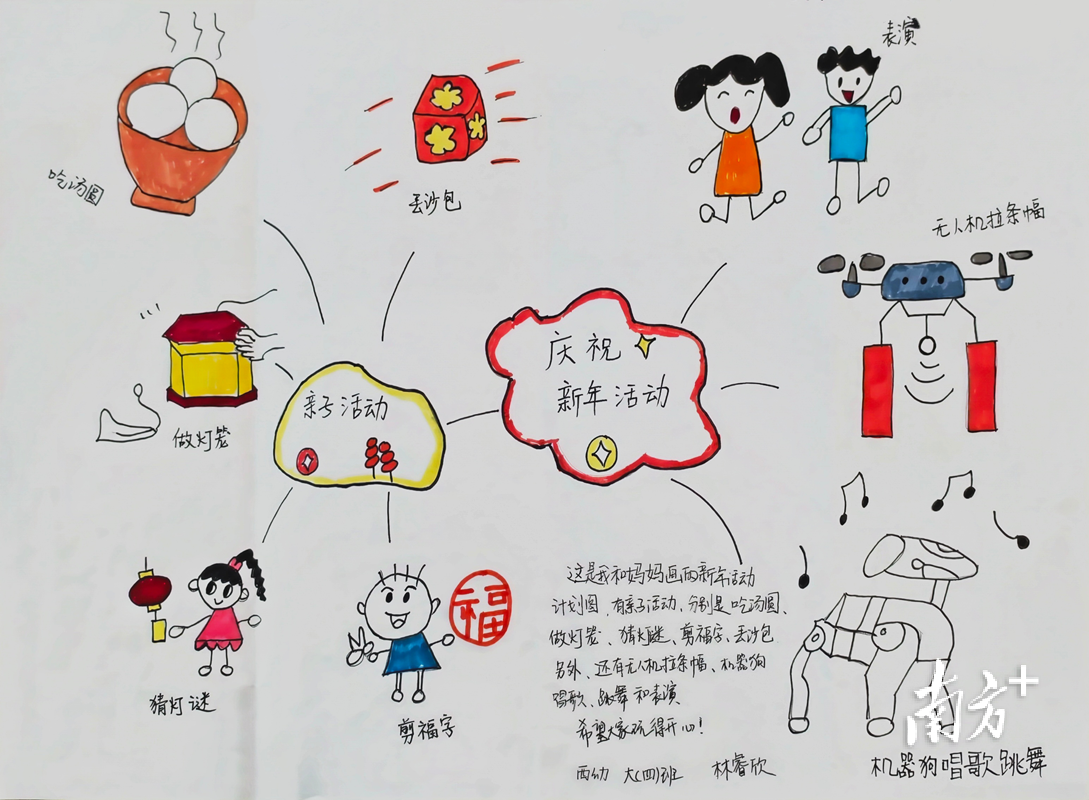 表演
吃汤圆
丢沙包
无人机拉条幅
庆祝
新年活动
亲子活动
做灯笼
福
猜灯谜
剪福字
这是我和妈妈画的新年活动
计划图,有亲子活动,分别是吃汤圆、
做灯笼、猜灯谜、剪福字、丢沙包
另外、还有无人机拉条幅、机器狗
唱歌、跳舞和表演
希望大家玩得开心!
西幼 大(四)班 林睿欣
机器狗唱歌跳舞
南方+